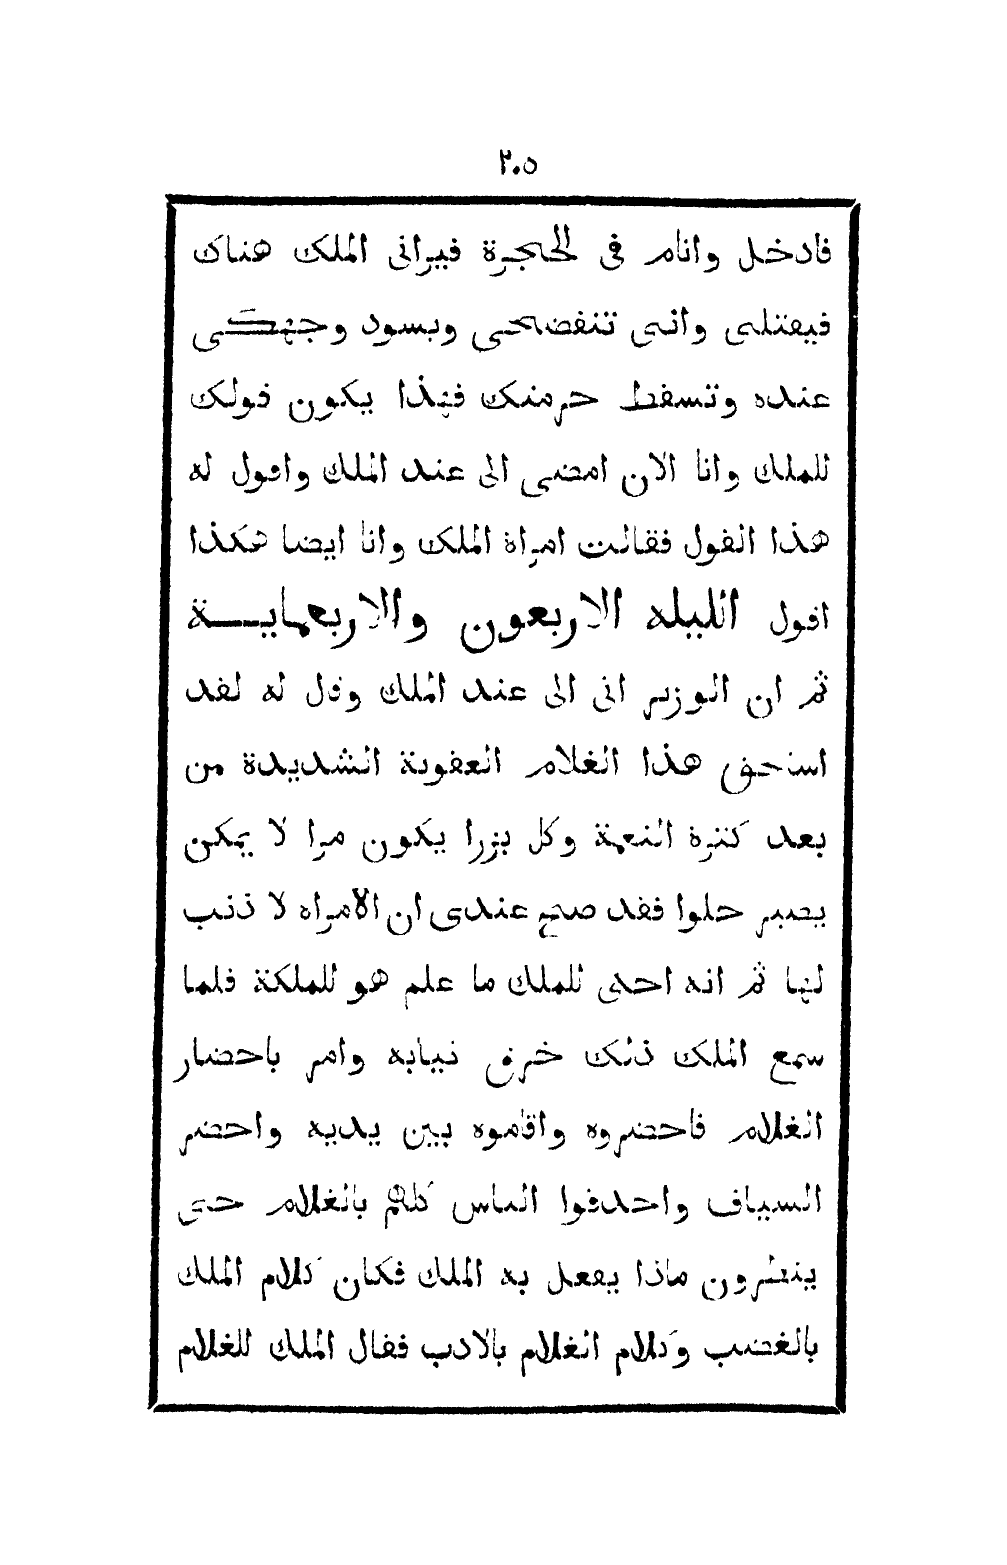 ٢٠٥
فادخل وانام فى الحجرة فيرانى الملك هناك
فيقتلنى وانتى تنفضحى ويسود وجهكى
عنده وتسقط حرمتك فهذا يكون قولك
للملك وانا الان امضى الى عند الملك واقول له
هذا القول فقالت امراة الملك وانا ايضا هكذا
اقول الليله الاربعون والاربعمايـــة
ثم ان الوزير اتى الى عند الملك وقال له لقد
استحق هذا الغلام العقوبة الشديدة من
بعد كثرة النعمة وكل بزرا يكون مرا لا يمكن
يصير حلوا فقد صح عندى ان الامراه لا ذنب
لها ثم انه احكى للملك ما علم هو للملكة فلما
سمع الملك ذلك خرق ثيابه وامر باحضار
الغلام فاحضروه واقاموه بين يديه واحضر
السياف واحدقوا الناس كلهم بالغلام حتى
ينظرون ماذا يفعل به الملك فكان كلام الملك
بالغضب وكلام الغلام بالادب فقال الملك للغلام